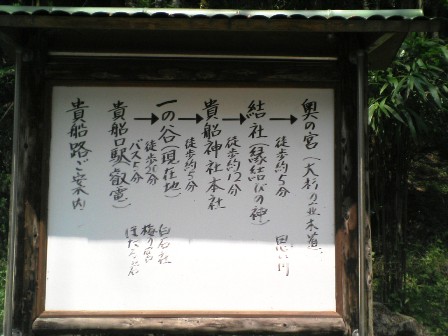 貴船路ご案内
貴船口駅(叡電)
徒歩25分
バス5分
一の谷(現在地)
徒歩約5分
白石社
梅の宮
ほたる岩
貴船神社本社
徒歩約12分
結社(縁結びの神)
徒歩約5分
思い川
奥の宮(大杉の並木道)